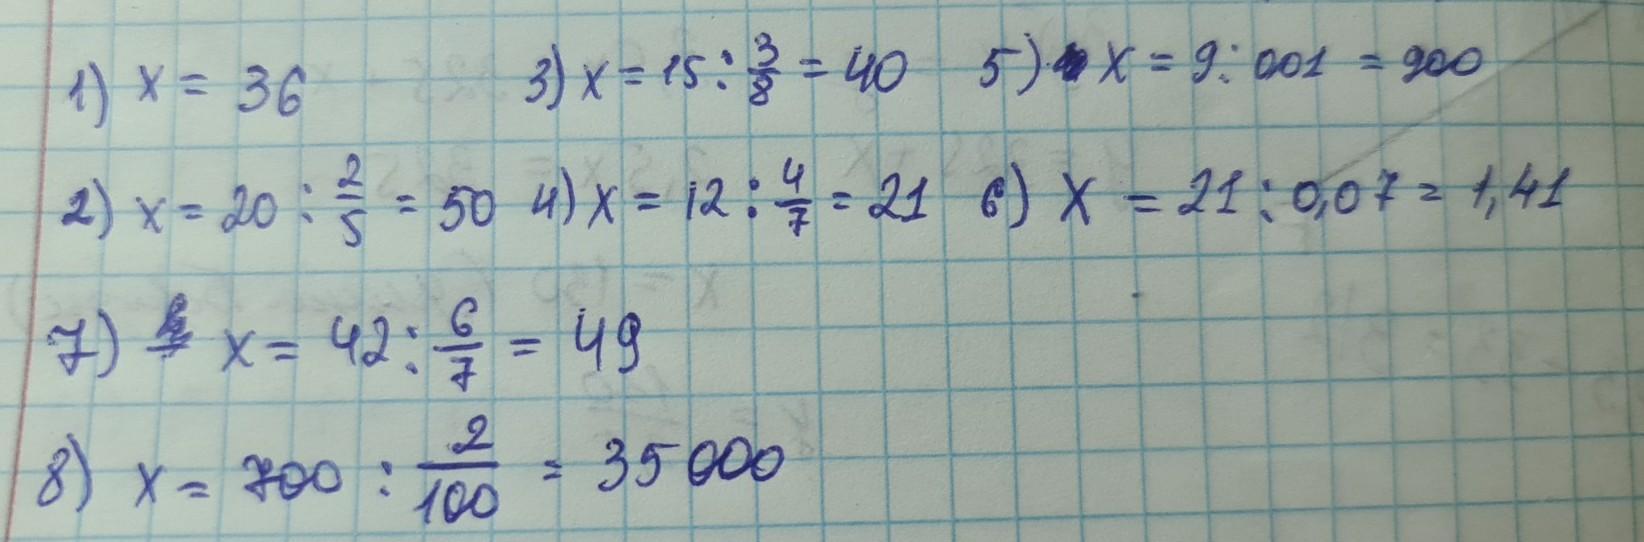 1) x = 36 3) x = 15 : 3/8 = 40 5) x = 9 : 001 = 900
2) x = 20 : 2/5 = 50 4) x = 12 : 4/7 = 21 6) x = 21 : 0,07 = 1,41
7) x = 42 : 6/7 = 49
8) x = 700 : 2/100 = 35000